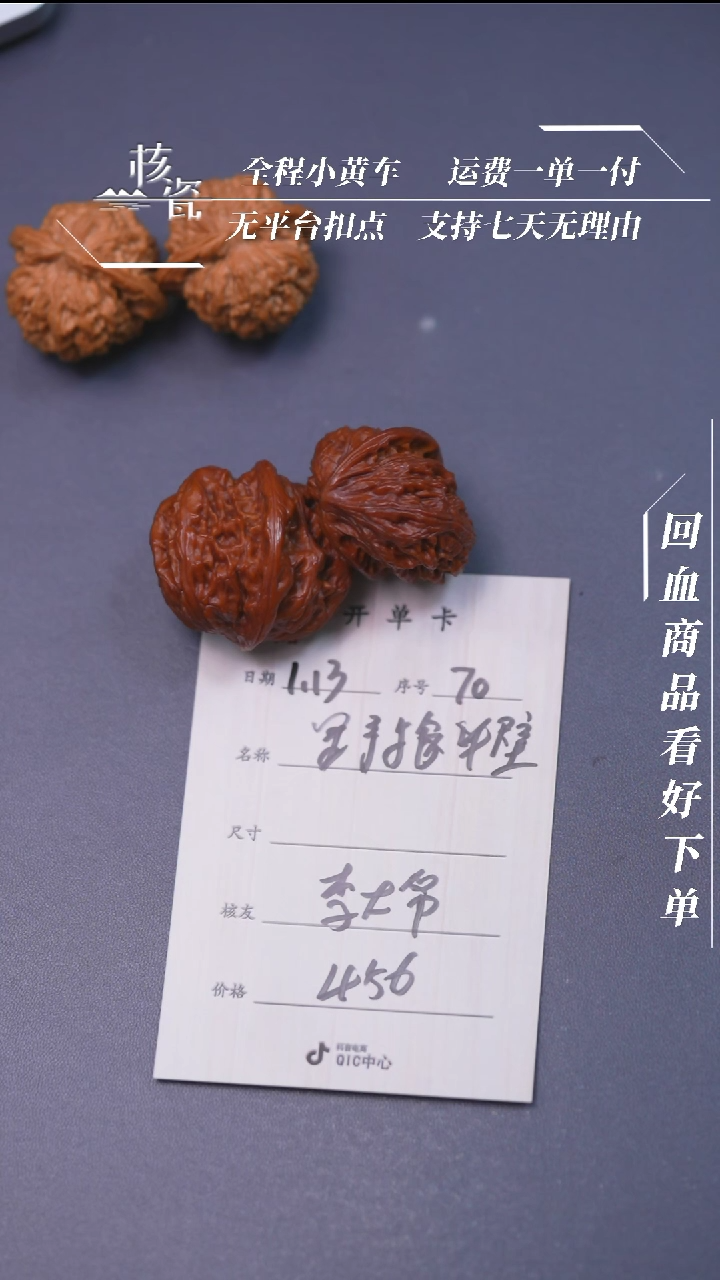 核瓷
全程小黄车 运费一单一付
无平台扣点 支持七天无理由
回血商品看好下单
开单卡
日期 1.13 序号 70
名称
尺寸
核友 李大帛
价格 456
抖音电商
QIC中心